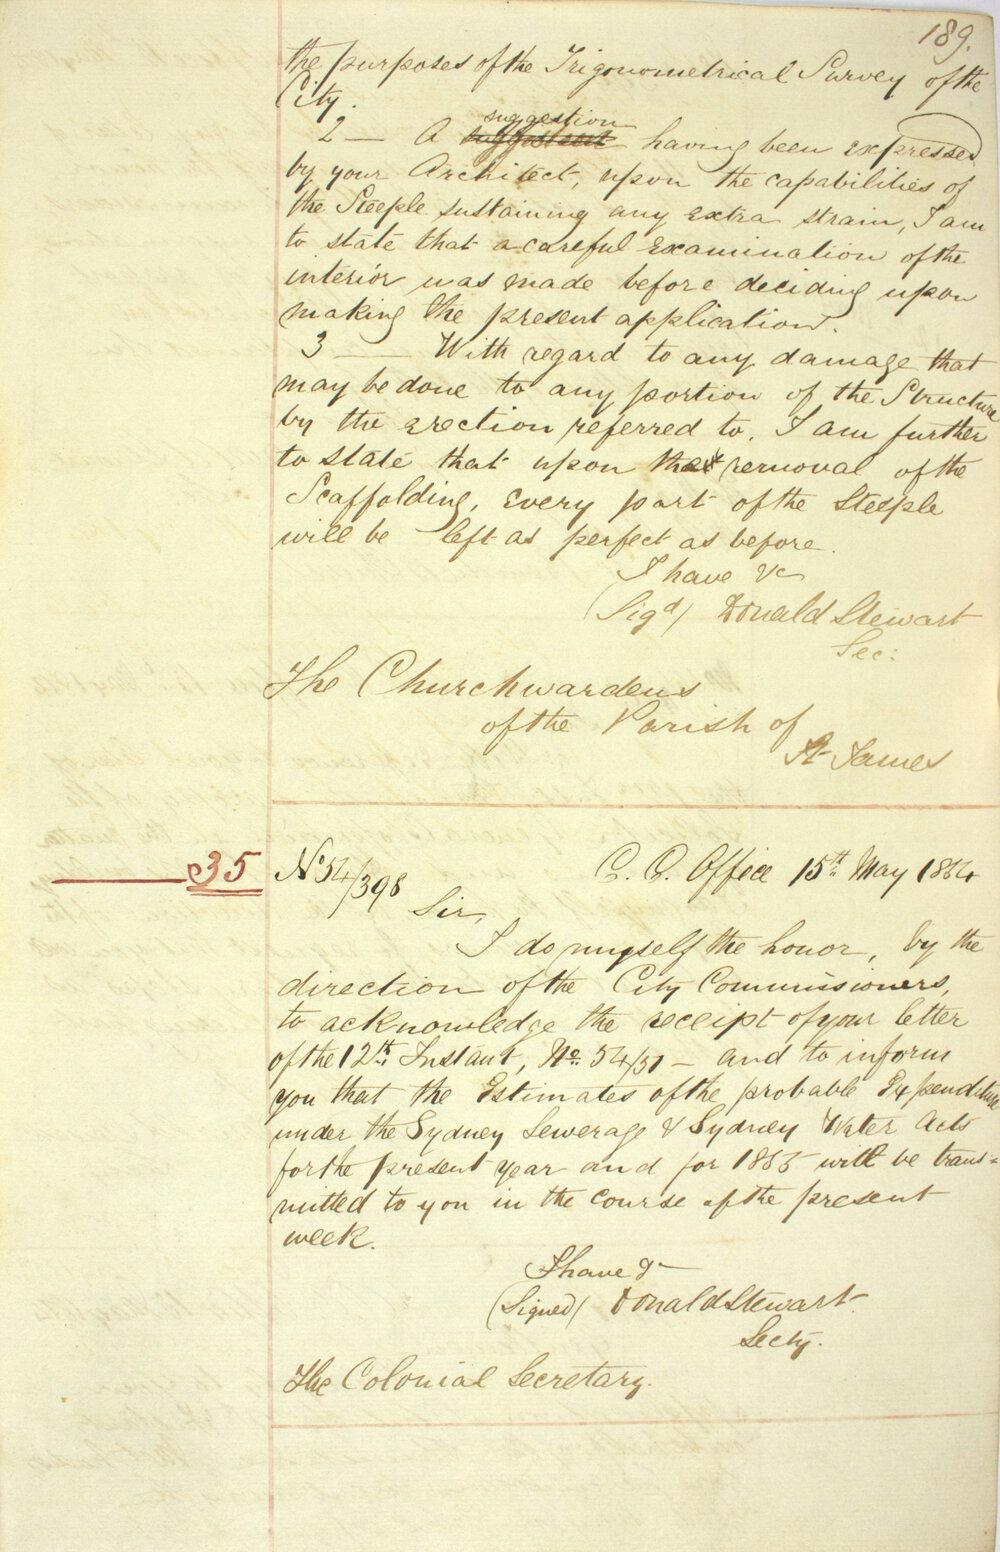 189.
the purposes of the Trigonometrical Survey of the
City.
suggestion
2 — A having been expressed
by your Architect, upon the capabilities of
the Steeple sustaining any extra strain, I am
to state that a careful examination of the
interior was made before deciding upon
making the present application.
3 — With regard to any damage that
may be done to any portion of the Structure
by the erection referred to, I am further
to state that upon the removal of the
Scaffolding, every part of the Steeple
will be left as perfect as before.
I have &c
(Sigd) Donald Stewart
Sec:
The Churchwardens
of the Parish of
St James
35
No 54/398
C. C. Office 15th May 1854
Sir,
I do myself the honor, by the
direction of the City Commissioners,
to acknowledge the receipt of your letter
of the 12th Instant, No. 54/51 — and to inform
you that the Estimates of the probable Expenditure
under the Sydney Sewerage & Sydney Water Acts
for the present year and for 1855 will be trans=
mitted to you in the course of the present
week.
I have &c
(Signed) Donald Stewart
Secty.
The Colonial Secretary.